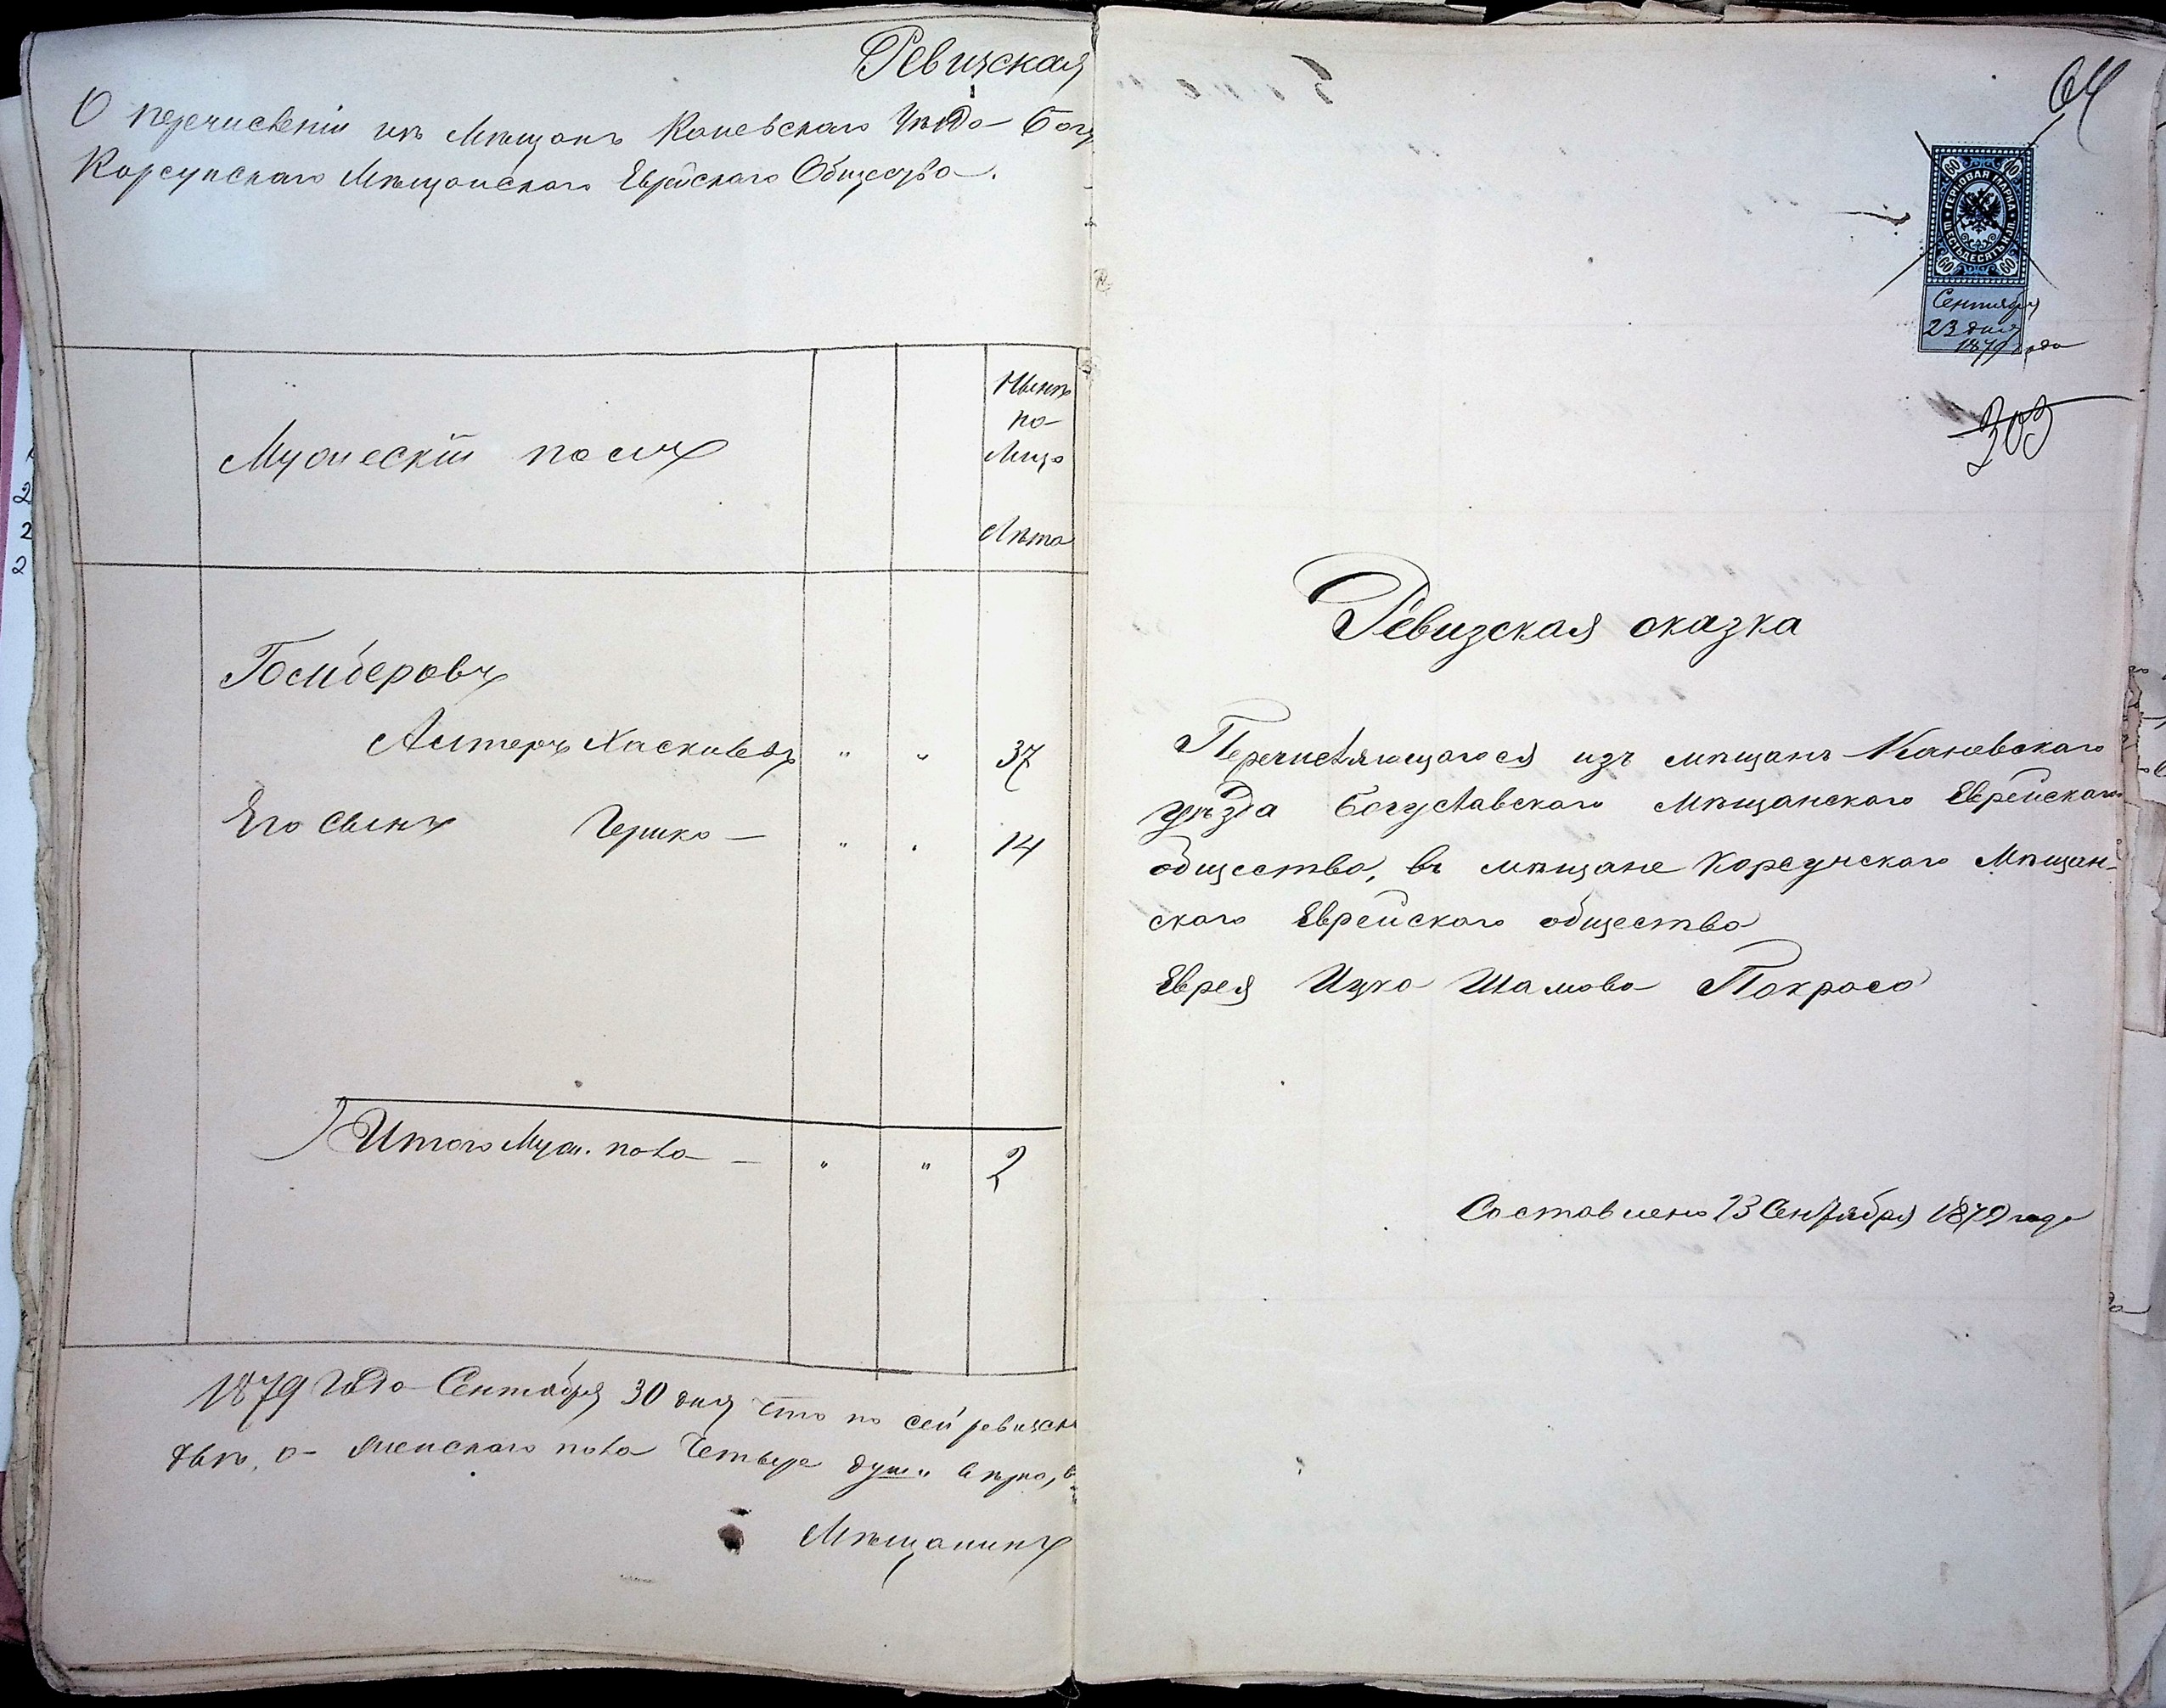 Ревизская
О перечисленіи изъ Мѣщанъ Каневскаго Уѣзда Богу
Корсунскаго Мѣщанскаго Еврейскаго Общества.
Мужескій полъ
Нынѣ
на
Лицо
Лѣта
Гомберовъ
Алтеръ Хаскилевъ " " 37
Его сынъ Гершко " " 14
Итого Муж. пола " " 2
1879 Года Сентября 30 дня что по сей ревизск
двѣ, а Женскаго пола Четыре души вѣрно, в
Мѣщанинъ
64
60 40
ГЕРБОВАЯ МАРКА
ШЕСТЬДЕСЯТЪ КОП.
60 60
Сентября
23 дня
1879 года
303
Ревизская сказка
Перечисляющагося изъ мѣщанъ Каневскаго
уѣзда Богуславскаго Мѣщанскаго Еврейскаго
общества, въ мѣщане Корсунскаго Мѣщан-
скаго Еврейскаго общества
Еврея Ицка Шамова Покраса
Составлена 23 Сентября 1879 года